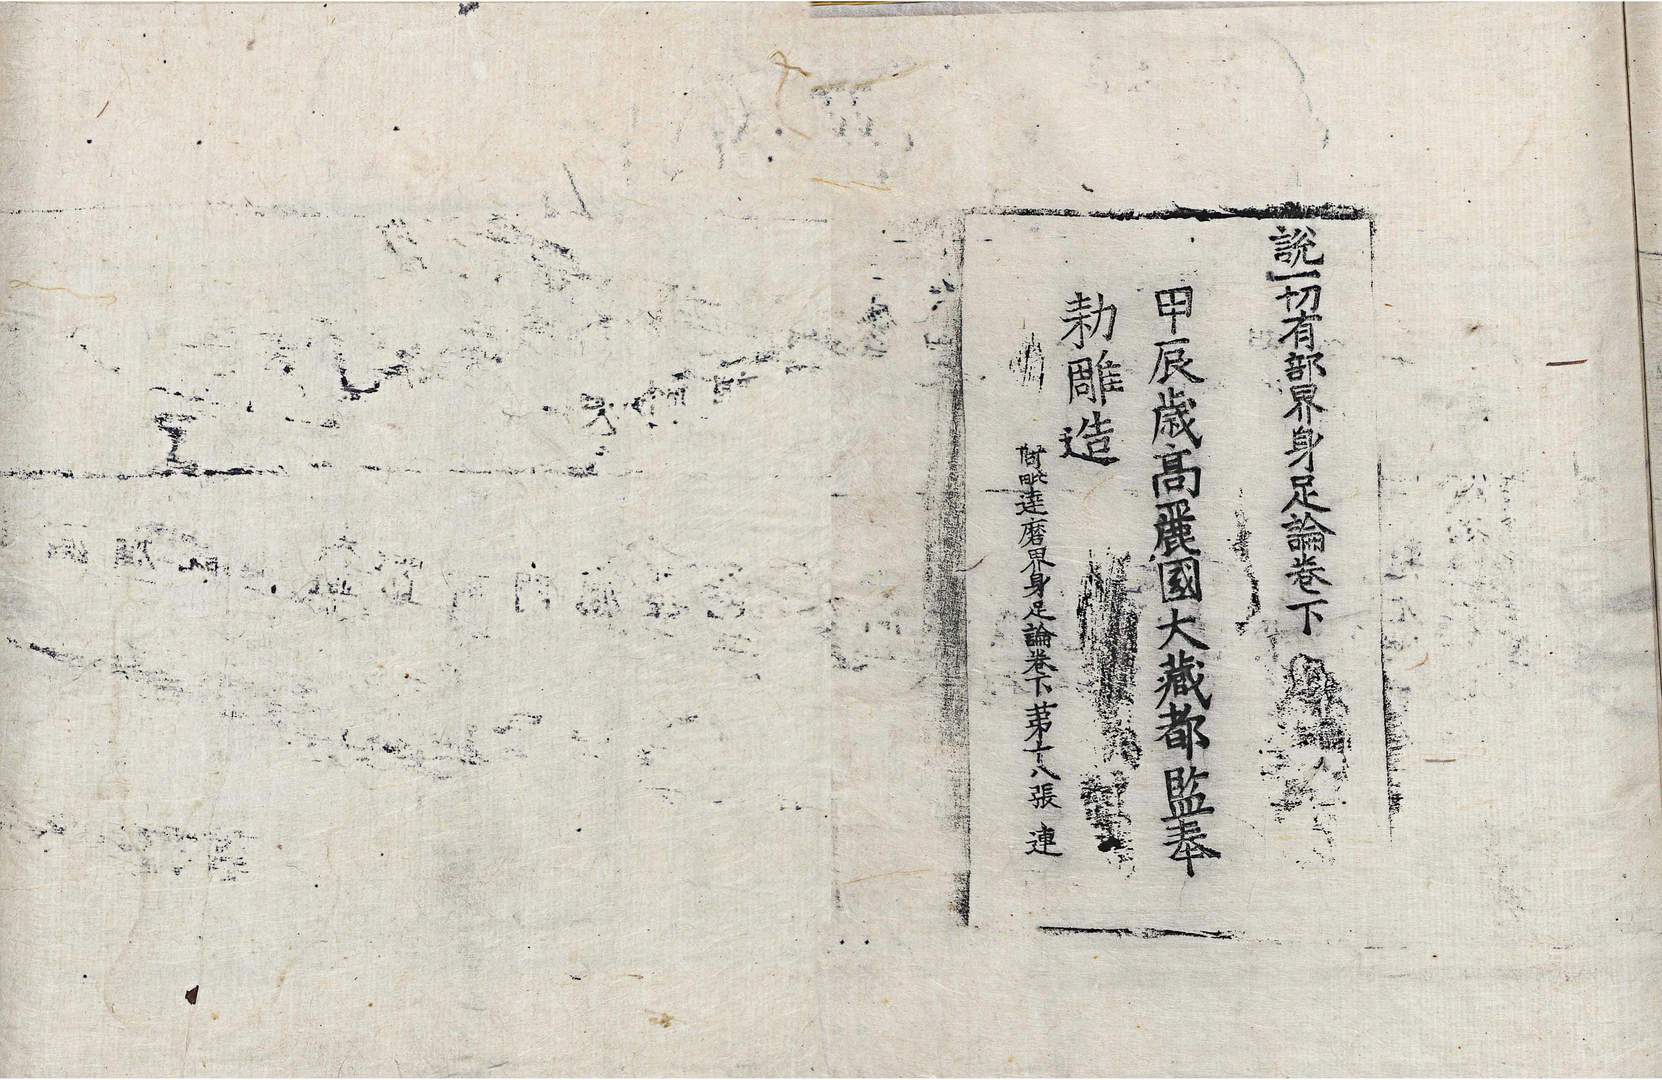 說一切有部界身足論卷下
甲辰歲高麗國大藏都監奉
勅雕造
毗達磨界身足論卷下 苐十八張 連